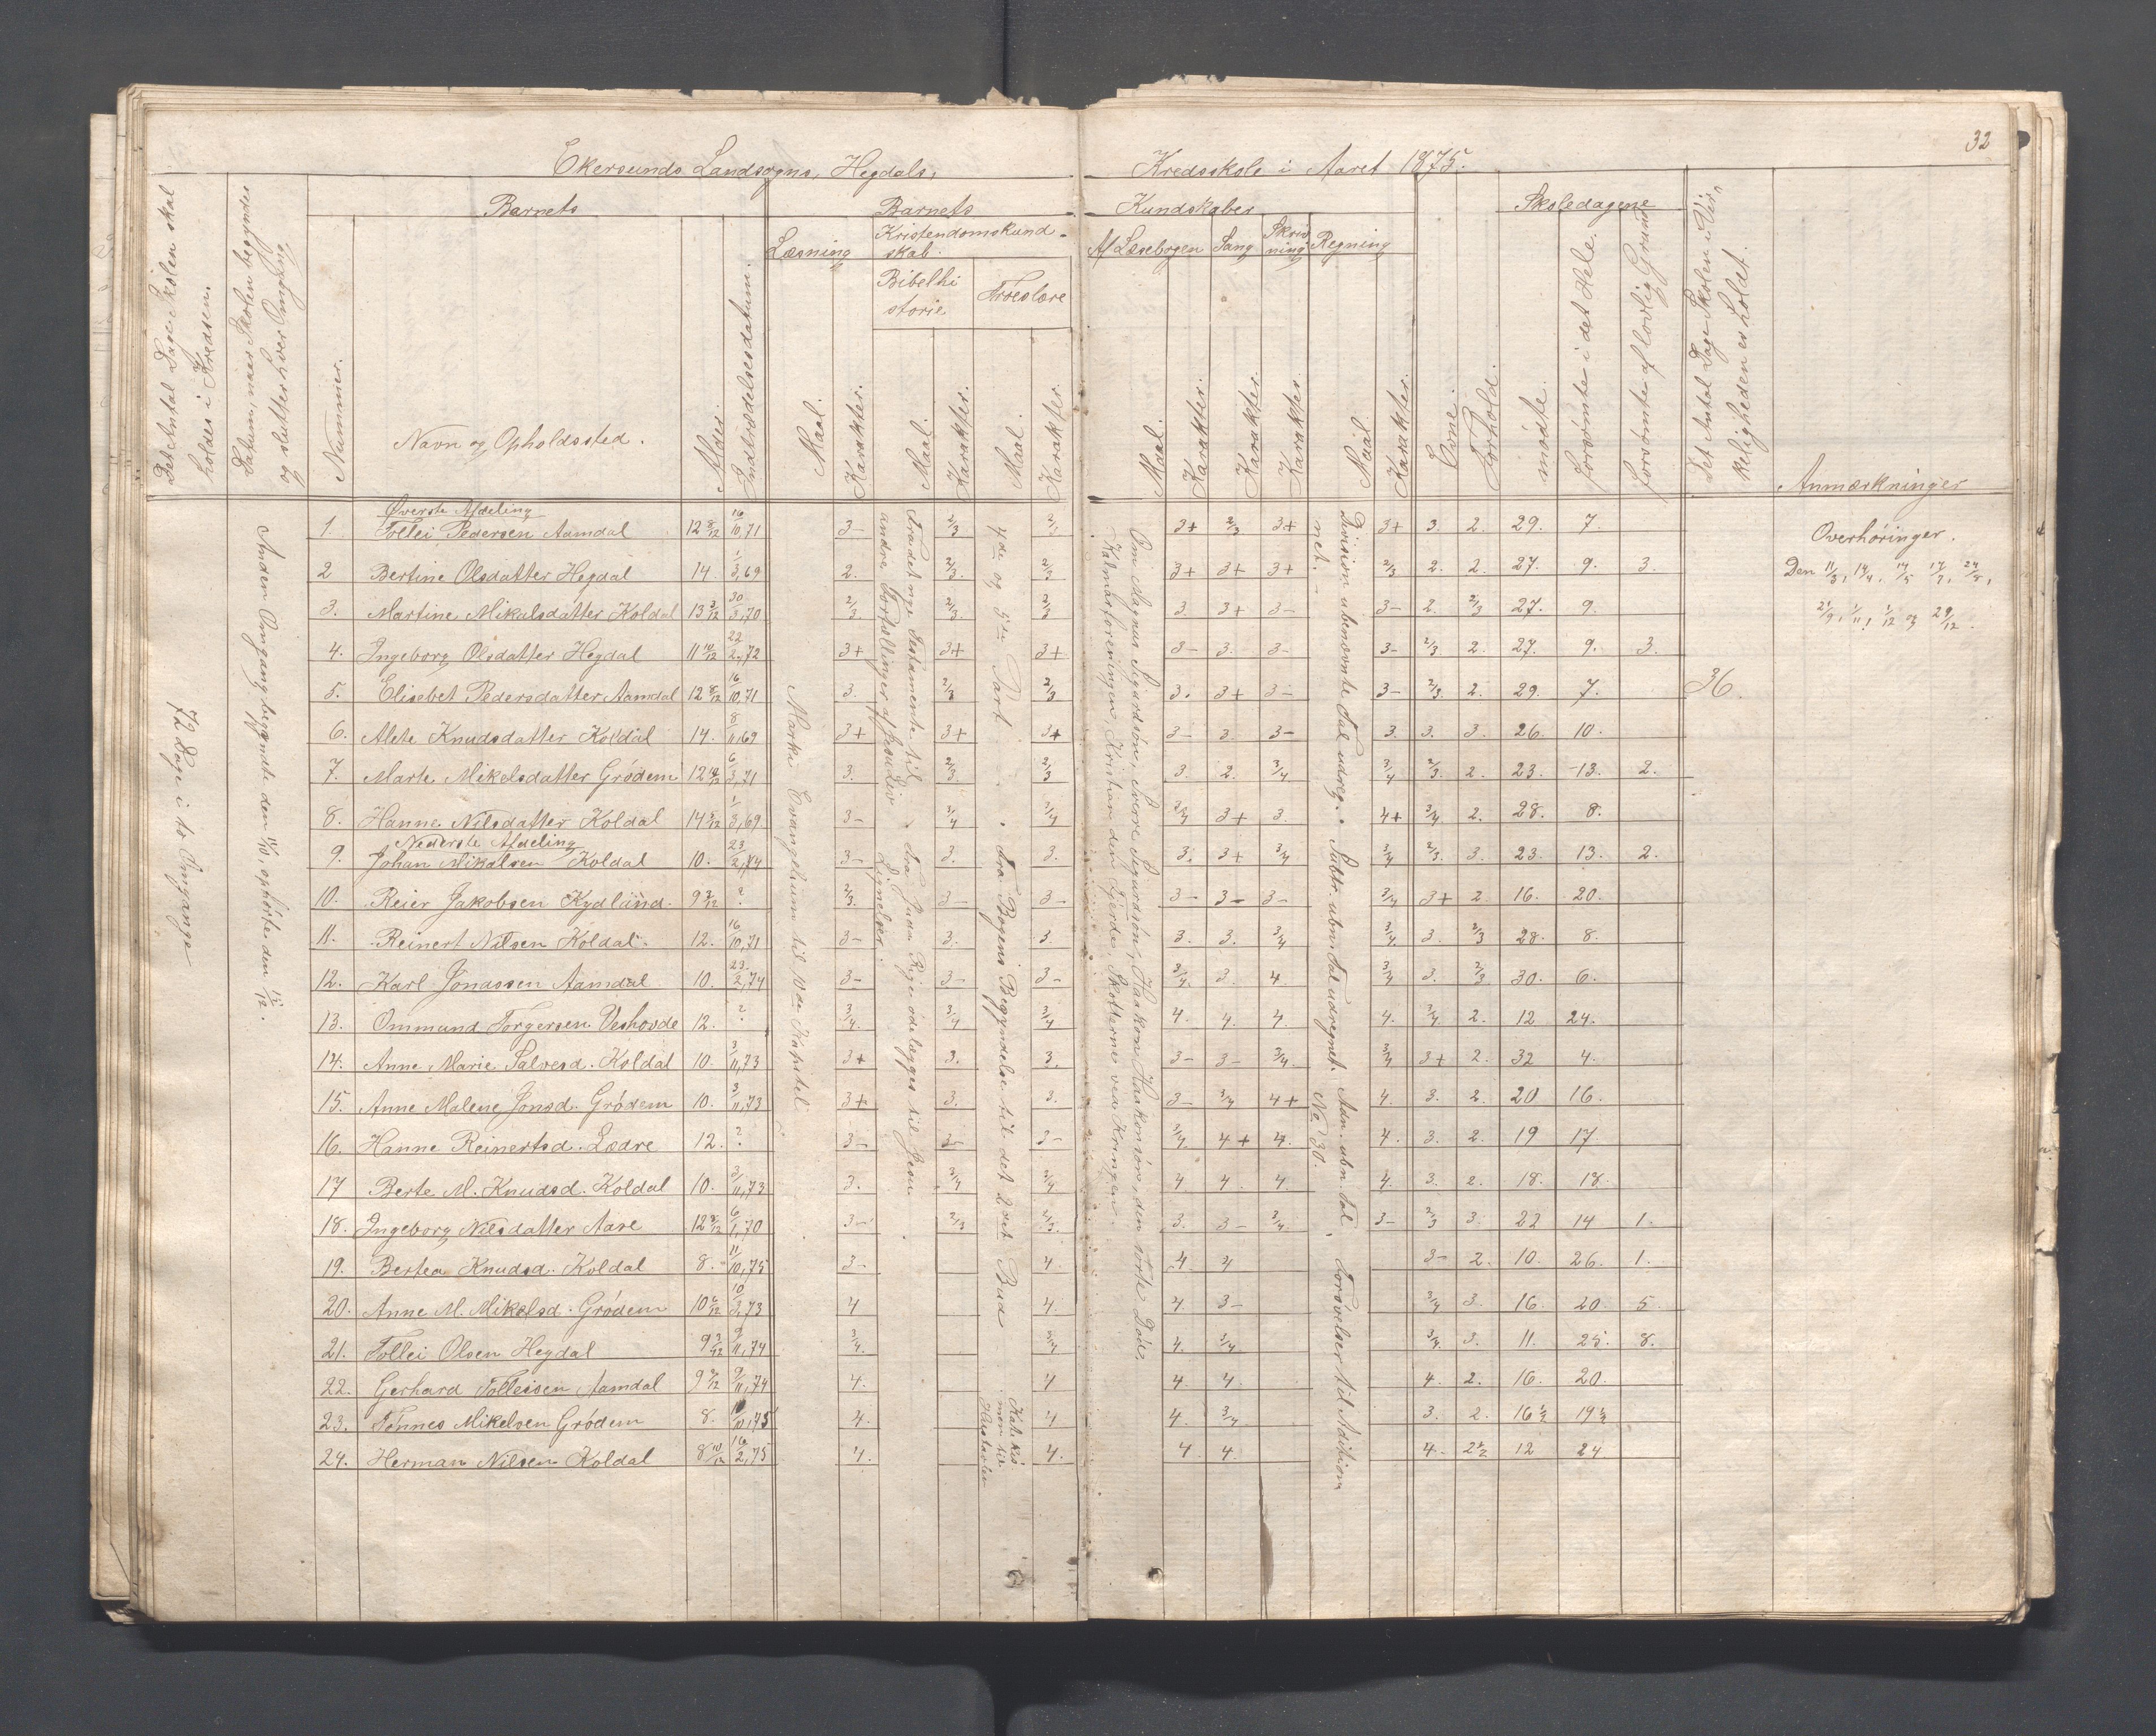 32
Ekersunds Landsogns, Hegdals, Kredsskole i Aaret 1875.
Det Antal Dage Skolen skal holdes i Kredsen.
Datum, naar Skolen begyndes og slutter hver Omgang
Barnets
Nummer.
Navn og Opholdssted.
Alder.
Indtrædelsesdatum.
Barnets Kundskaber
Læsning
Kristendomskundskab.
Bibelhistorie
Troeslære
Af Læsebogen
Sang
Skrivning
Regning
Maal.
Karakter.
Maal.
Karakter.
Maal.
Karakter.
Maal.
Karakter.
Karakter.
Karakter.
Maal.
Karakter.
Evne.
Forhold.
Skoledagene
mødte.
forsømte i det Hele.
forsømte af lovlig Grund
Det Antal Dage Skolen i Virkeligheden er holdt.
Anmærkninger
72 Dage i to Omgange
Anden Omgang begyndte den
Øverste Afdeling
1. Tollei Pedersen Aamdal 12 8/12 16/10,71 3- 2/3 3+ 2/3 3+ 3+ 3. 2. 29. 7.
2 Bertine Olsdatter Hegdal 14. 1/3,69 2. 2/3. 2/3 3+ 3+ 3+ 2/3 2. 2. 27. 9. 3.
3. Martine Mikalsdatter Koldal 13 3/12 30/3,70 2/3. 2/3. 2/3 3. 3+ 3- 3- 2. 2/3 27. 9.
4. Ingeborg Olsdatter Hegdal 11 10/12 22/2,72 3+ 3+ 3+ 3- 3. 3- 3- 2/3. 2. 27. 9. 3.
5. Elisebet Pedersdatter Aamdal 12 8/12 16/10,71 3. 2/3 2/3 3. 3+ 3- 3- 2/3. 2. 29. 7.
6. Alete Knudsdatter Koldal 14. 8/11,69 3+ 3+ 3+ 3- 3. 3- 3. 3. 3. 26. 10.
7. Marte Mikelsdatter Grødem 12 10/12 6/3,71 3. 2/3 2/3 3. 2. 3/4 3/4 2/3. 2. 23. 13. 2.
8. Hanne Nilsdatter Koldal 14 5/12 1/3,69. 3- 3/4 3/4 3/4 3+ 3. 4+ 3/4 2. 28. 8.
Nederste Afdeling
9. Johan Mikalsen Koldal 10. 23/2,74 3- 3. 3. 3. 3+ 3/4 3/4 2/3. 3. 23. 13. 2.
10. Reier Jakobsen Kydland. 9 3/12 ? 2/3. 3- 3- 3- 3- 3- 3/4 3+ 2 16. 20.
11. Reinert Nilsen Koldal. 12. 16/10,71 3- 3. 3. 3. 3. 3/4 3/4. 3. 2/3 28. 8.
12. Karl Jonassen Aamdal 10. 23/2,74 3- 3- 3- 3/4. 3. 4 3/4 3. 2/3 30. 6.
13. Ommund Torgersen Veshovde 12. ? 3/4. 3/4 3/4 4. 4. 4. 4. 3/4 2. 12 24.
14. Anne Marie Salvesd. Koldal 10. 3/11,73 3+ 3. 3. 3- 3- 3/4. 3/4 3+ 2. 32 4.
15. Anne Malene Jonsd. Grødem 10. 3/11,73 3+ 3. 3. 3- 3/4 4+ 4. 3. 2. 20 16.
16. Hanne Reinertsd. Lædre 12. ? 3- 3- 3- 3/4. 4+ 4. 4. 3. 2. 19 17
17 Berte M. Knudsd. Koldal 10. 3/11,73 3. 3/4 3/4 4. 4. 4. 4. 3. 2. 18. 18.
18. Ingeborg Nilsdatter Aase 12 9/12 6/1,70 3- 2/3 2/3. 3. 3- 3/4. 3- 2/3 3. 22 14 1.
19. Bertea Knudsd. Koldal 8. 11/10,75 3- 4. 4 4 3- 2. 10. 26. 1.
20. Anne M. Mikelsd. Grødem 10 6/12 10/3,73 4 4. 4. 3- 3/4 3. 16. 20. 5.
21. Tollei Olsen Hegdal 9 3/12 9/11,74 3/4. 3/4 4. 3/4. 3/4 3. 11. 25. 8.
22. Gerhard Tolleisen Aamdal 9 7/12 9/11,74 4. 4 4. 4. 4. 2. 16. 20.
23. Tønnes Mikelsen Grødem 8. 10,75 4. 4 4. 3/4 3. 2. 16 1/2 19 1/2
24. Herman Nilsen Koldal 8 10/12 16/2,75 4. 4. 4 4. 4. 2 1/2 12 24
Marki Evangelium til 10de Kapitel
Fra det nye Testamente til andre Fortællinger af Jesu Liv. Fra Juda Rige ødelægges til Jesu Lignelser.
4de og 5te Part. Fra Bogens Begyndelse til det 2det Bud
Om Magnus Sigurdsøn, Sverre Sigurdsøn, Haakon Haakonsøn, den sorte Død, Kalmarforeningen, Kristian den Fjerde, Skotterne ved Kringen.
Division ubenævnte Tal udreg. Subtr. ubn. Tal udregnet. Adn. ubn. Tal, Forøvelser til Adition
No. 30.
36.
Overhøringer.
Den 11/3, 14/4, 14/5 17/7, 24/8,
21/9, 1/11, 1/12 og 29/12.